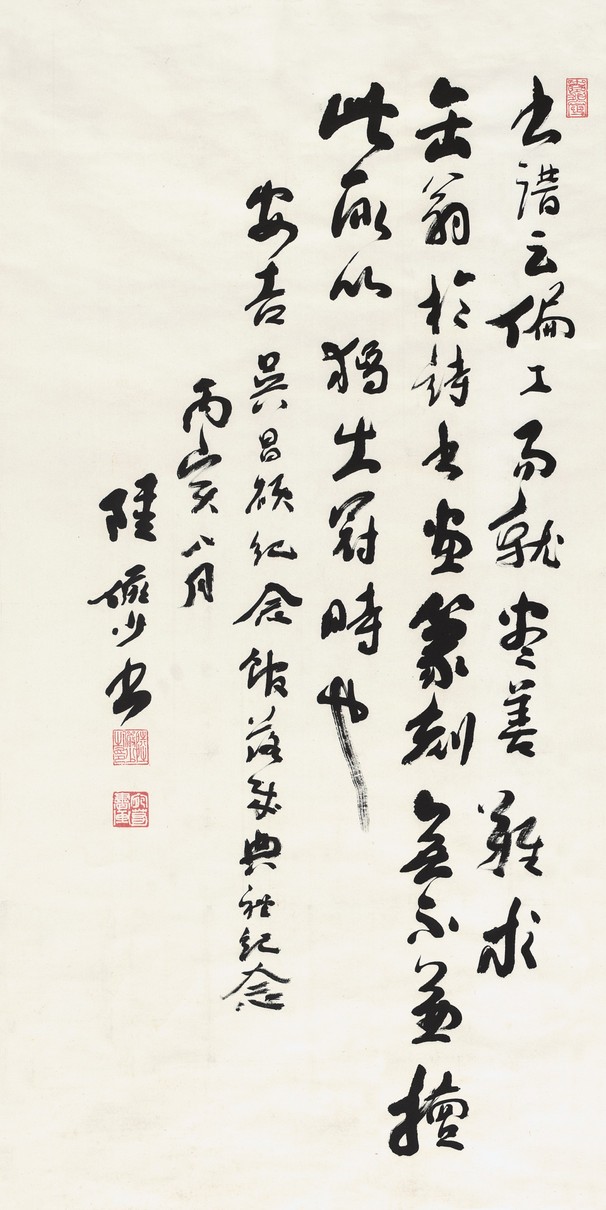 書譜云偏工易就盡善難求
缶翁於詩書畫篆刻無不兼擅
此所以獨出冠時也
安吉吳昌碩紀念館落成典禮紀念
丙寅八月
陸儼少書